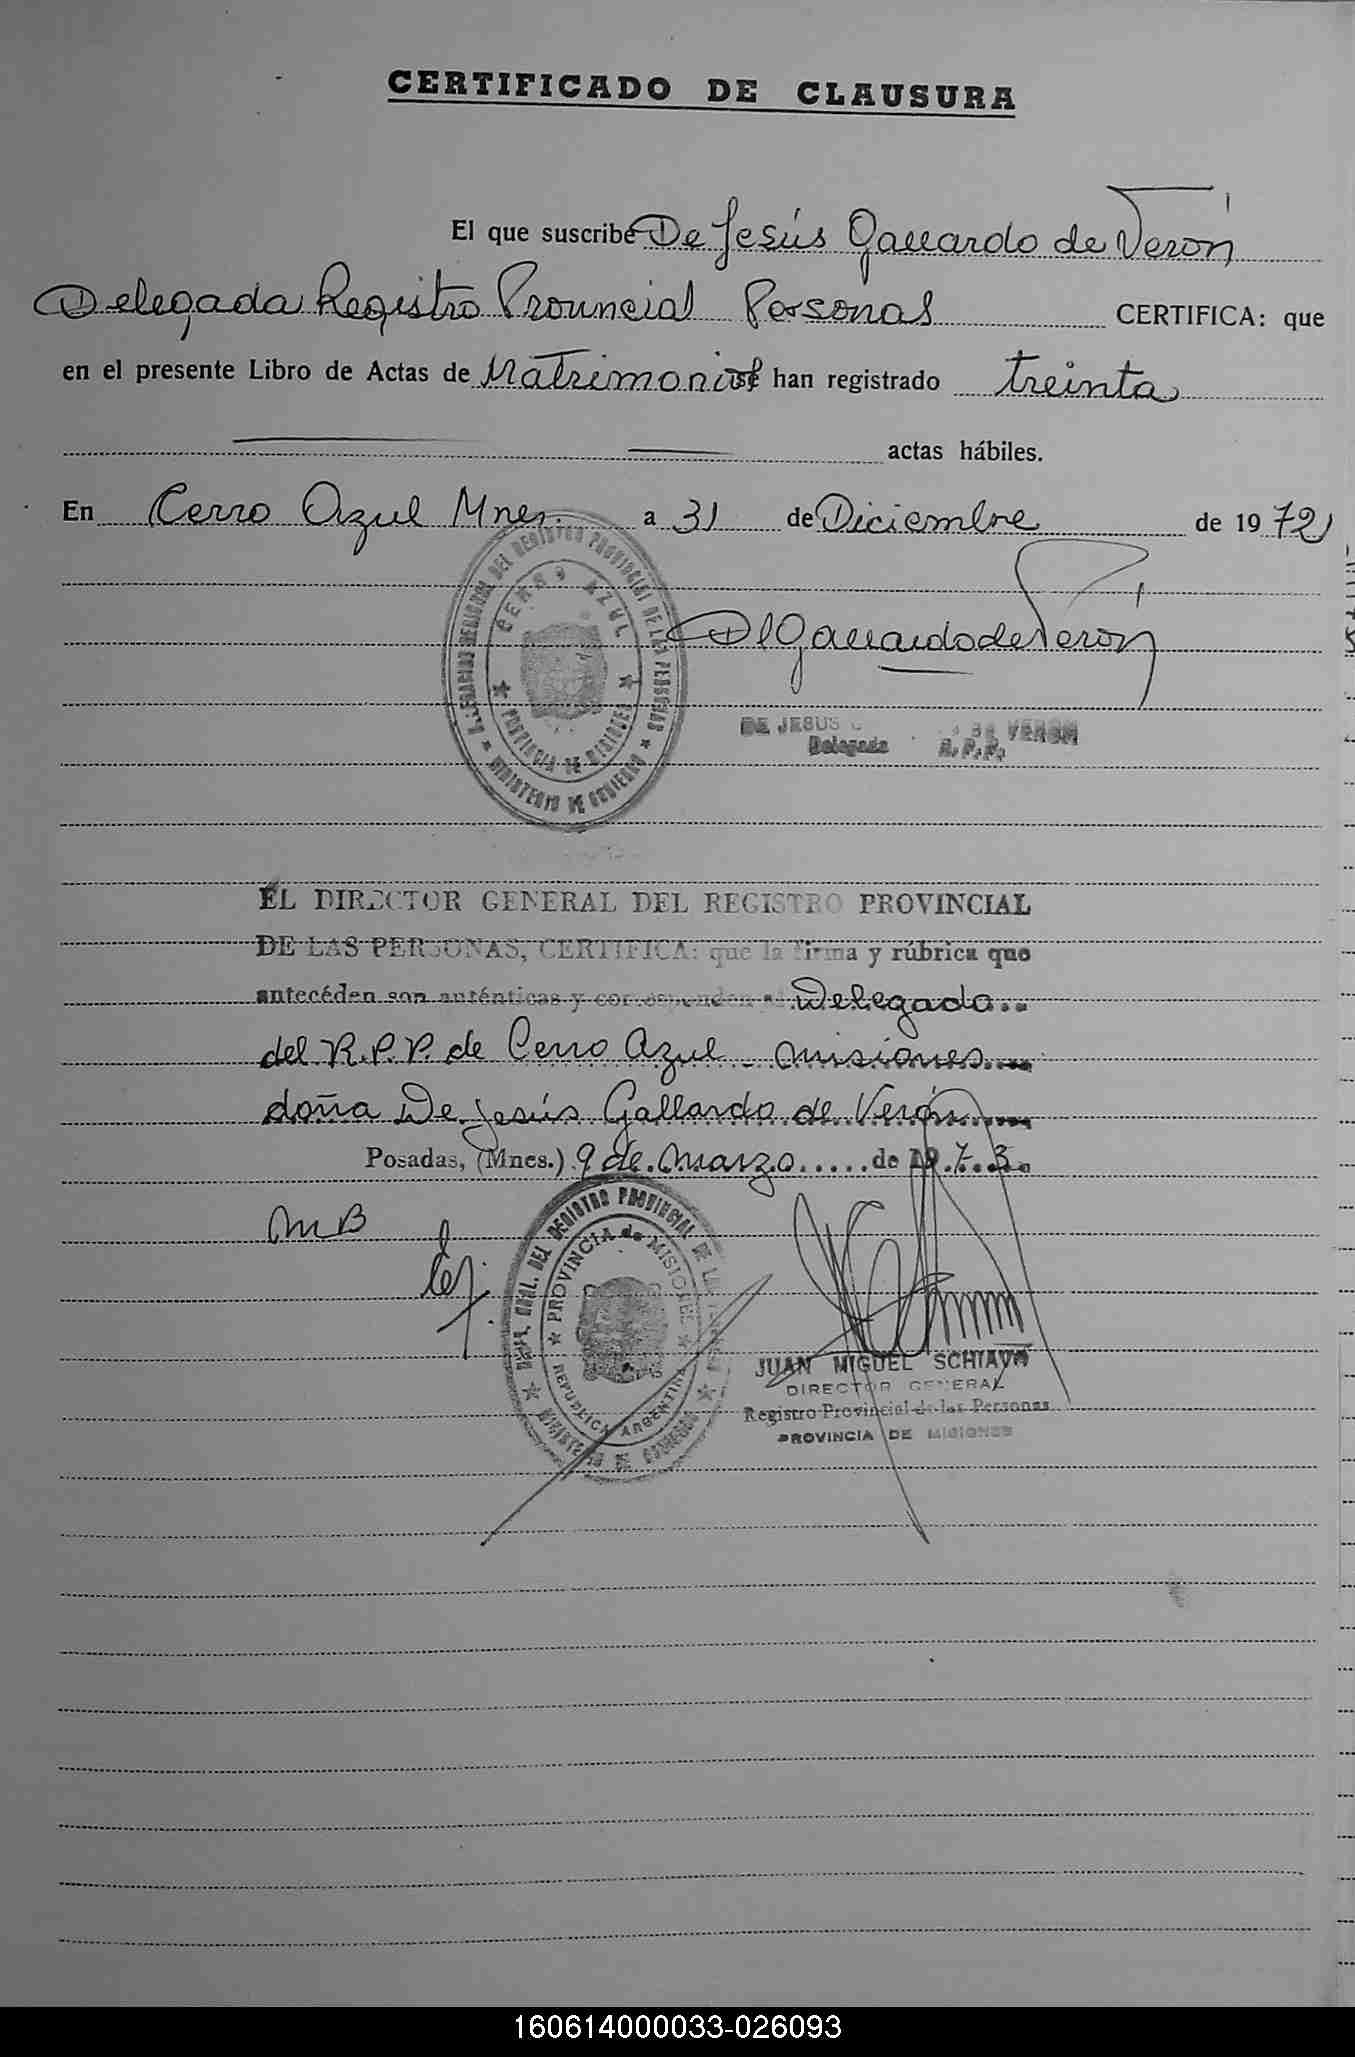 CERTIFICADO DE CLAUSURA
El que suscribe De Jesús Gallardo de Verón
Delegada Registro Provincial Personas CERTIFICA: que
en el presente Libro de Actas de Matrimonios se han registrado treinta
actas hábiles.
En Cerro Azul Mnes. a 31 de Diciembre de 1972
DELEGACION REGIONAL DEL REGISTRO PROVINCIAL DE LAS PERSONAS
CERRO AZUL
PROVINCIA DE MISIONES
MINISTERIO DE GOBIERNO
DJGallardo de Verón
DE JESUS DE VERON
Delegada R.P.P.
EL DIRECTOR GENERAL DEL REGISTRO PROVINCIAL
DE LAS PERSONAS, CERTIFICA: que la firma y rúbrica que
antecéden son auténticas y corresponden al Delegado..
del R.P.P. de Cerro Azul - Misiones...
doña De Jesús Gallardo de Verón....
Posadas, (Mnes.) 9 de Marzo..... de 1973.
MB
DIR. GRAL. DEL REGISTRO PROVINCIAL DE LAS PERSONAS
PROVINCIA de MISIONES
REPUBLICA ARGENTINA
MINISTERIO DE GOBIERNO
JUAN MIGUEL SCHIAVO
DIRECTOR GENERAL
Registro Provincial de las Personas
PROVINCIA DE MISIONES
160614000033-026093